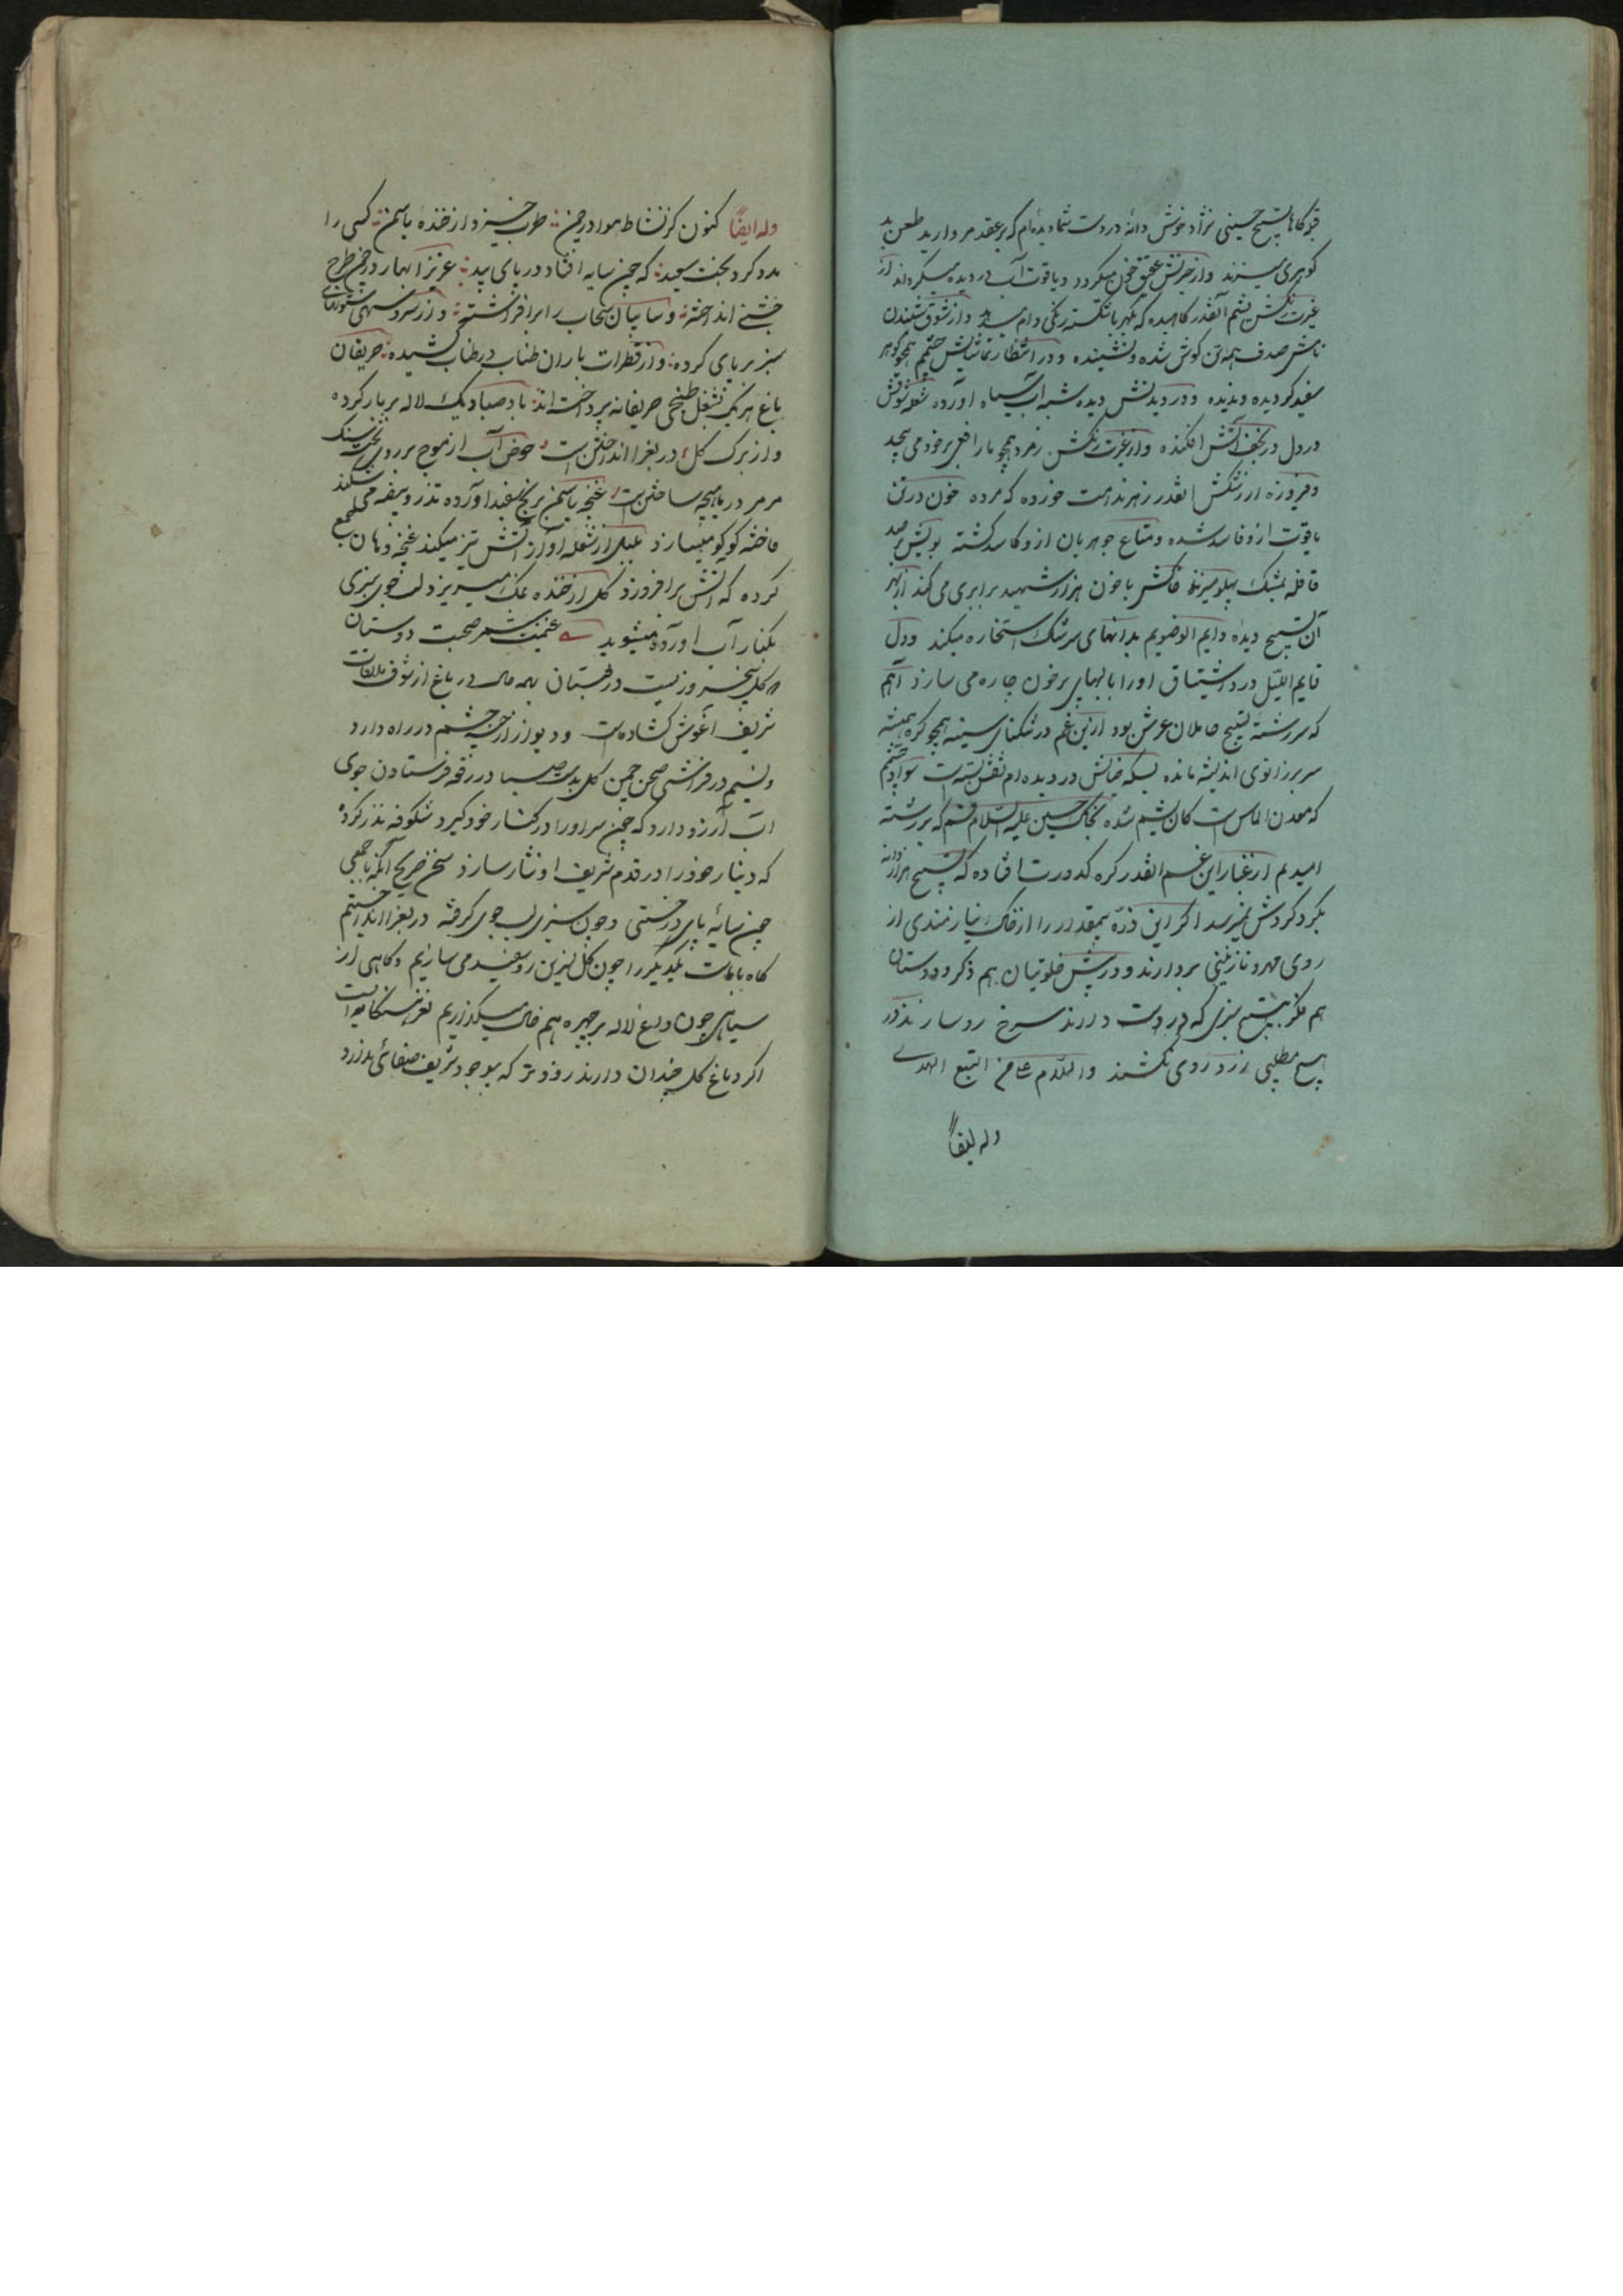 قبوگاها تسبیح حسینی نژاد خوش دانهٔ در دست شما دیده‌ام که بر عقد مروارید طعن بد
کوهری میزند و از حیرتش عقیق خون میکردد و یاقوت آب در دیده میکرداند از
غیرت رنکش یشم آنقدر کاهیده که کهربا شکسته رنکی وام میدهد و از شوق شنیدن
نامش صدف همه تن کوش شده و نشنیده و در انتظار تماشایش چشم همچو کوهر
سفید کردیده و ندیده و در دیدنش دیده شبه آب سیاه آورده شعله شوقش
در دل در نجف آتش افکنده و از غیرت رنکش زمرد همچو مار افعی بر خود می پیچد
و فیروزه از رشکش انقدر زهر ندامت خورده که مرده خون در تن
یاقوت ازو فاسد شده و متاع جوهریان ازو کاسد کشته بویش بر صد
قافله مشک پهلو میزند خاکش با خون هزار شهید برابری می کند از بهر
آن تسبیح دیده دایم الوضویم بدانهای سرشک استخاره میکند و دل
قایم اللیل در اشتیاق او را بابهای پر خون چاره می سازد آهم
که سر رشته تسبیح حاملان عرش بود ازین غم در تنکنای سینه همچو کره همیشه
سر بر زانوی اندیشه مانده بسکه خیالش در دیده‌ام نقش بسته است سواد چشم
که معدن الماس است کان یشم شده بخاک حسین علیه السلام قسم که بر رشته
امیدم از غبار این غم انقدر کره کدورت افتاده که تسبیح هزار دانه
بکرد کردش نمیرسد اکر این ذرّه بیمقدار را از خاک نیازمندی از
روی مهر و نازنینی بردارند و در پیش خلوتیان هم ذکر و دوستان
هم فکر بتسبیح سبزی که در دست دارند سرخ رو سازند در
هیچ مطلبی زرد روی نکشند والسّلام علی من اتبع الهدی
وله ایضاً
وله ایضاً کنون کز نشاط هوا در چمن طرب خیزد از خنده یاسمن کسی را
مدد کرد بخت سعید که چون سایه افتاد در پای بید عزیزا بهار در چمن طرح
جشنی انداخته و سایبان سحاب را برافراشته و از سرو سهی ستونهای
سبز بر پای کرده و از قطرات باران طناب در طناب کشیده حریفان
باغ هر یک بشغل طبخی حریفانه پرداخته‌اند باد صبا دیک لاله بر بار کرده
و از برک کل در بغرا انداختن است حوض آب از موج بر روی تخته سنک
مرمر در ماهیچه ساختن است غنچه یاسمن برنج سفید آورده تذرو بیضه می شکند
فاخته کوکو میسازد بلبل از شعله آواز آتش تیز میکند غنچه دهان جمع
کرده که آتش برافروزد کل از خنده نمک میریزد لب جوی سبزی
بکنار آب آورده میشوید غنیمت شمر صحبت دوستان
که کل پنجروز است در بوستان همه در باغ از شوق ملاقات
شریف آغوش کشاده است و دیوار از رخنه چشم در راه دارد
و نسیم در فراشی صحن چمن کل بدست صبا در رقعه فرستادن جوی
آب آرزو دارد که چمن سر او را در کنار خود کیرد شکوفه نذر کرده
که دینار خود را در قدم شریف او نثار سازد سخن صریح آنکه با جمعی
چون سایه پای درختی و چون سبزی لب جوی کرفته در بغرا انداختیم
کاه بامات یکدیکر را چون کل نسرین روسفید می سازیم و کاهی از
سیاهی چون داغ لاله بر چهره هم خال میکذاریم نغز هنکامه ایست
اکر دماغ کل خندان دارند زودتر که بوجود شریف صفائی ندارد